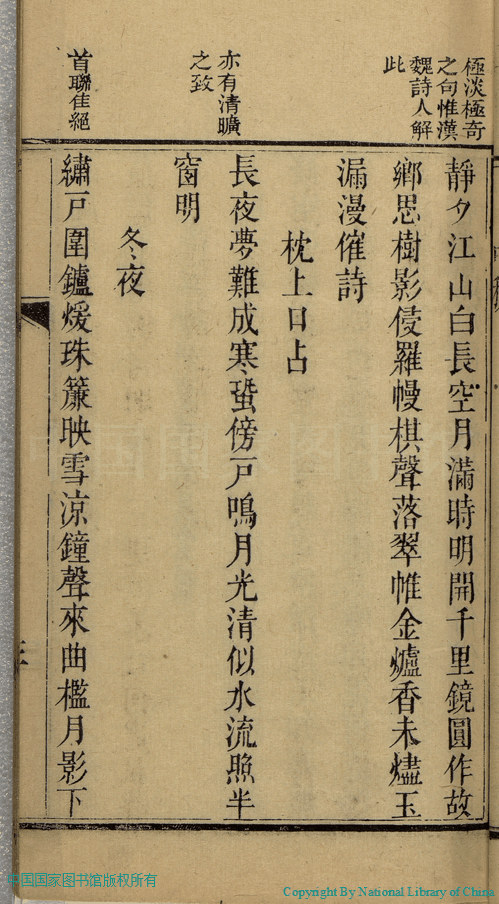 極淡極奇
之句惟漢
魏詩人解
此
亦有清曠
之致
首聯佳絕
靜夕江山白長空月滿時明開千里鏡圓作故
鄉思樹影侵羅幔棋聲落翠帷金爐香未燼玉
漏漫催詩
枕上口占
長夜夢難成寒蛩傍戶鳴月光清似水流照半
窗明
冬夜
繡戶圍鑪煖珠簾映雪涼鐘聲來曲檻月影下
中国国家图书馆版权所有
Copyright By National Library of China